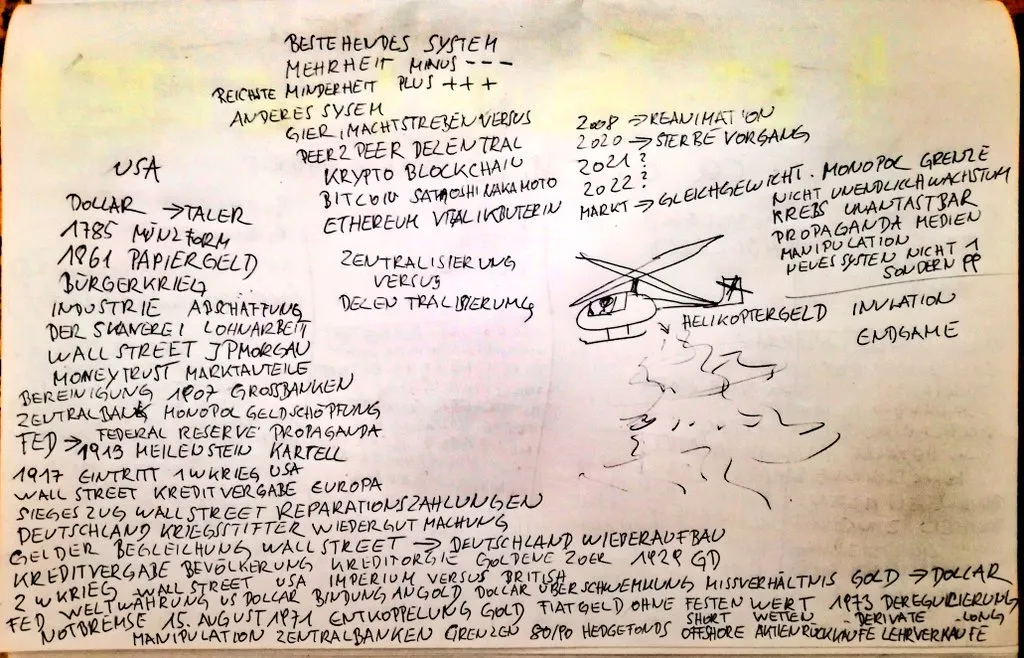 BESTEHENDES SYSTEM
MEHRHEIT MINUS ---
REICHSTE MINDERHEIT PLUS +++
ANDERES SYSEM
GIER, MACHTSTREBEN VERSUS
PEER2PEER DEZENTRAL
KRYPTO BLOCKCHAIN
BITCOIN SATOSHI NAKAMOTO
ETHEREUM VITALIK BUTERIN
ZENTRALISIERUNG
VERSUS
DEZENTRALISIERUNG
2008 → REANIMATION
2020 → STERBE VORGANG
2021 ?
2022 ?
MARKT → GLEICHGEWICHT. MONOPOL GRENZE
NICHT UNENDLICH WACHSTUM
KREBS UNANTASTBAR
PROPAGANDA MEDIEN
MANIPULATION
NEUES SYSTEN NICHT 1
SONDERN 99
HELIKOPTERGELD INVLATION
ENDGAME
USA
DOLLAR → TALER
1785 MÜNZFORM
1861 PAPIERGELD
BÜRGERKRIEG
INDUSTRIE ABSCHAFFUNG
DER SKLAVEREI LOHNARBEIT
WALL STREET JPMORGAN
MONEYTRUST MARKTANTEILE
BEREINIGUNG 1907 GROSSBANKEN
ZENTRALBANK MONOPOL GELDSCHÖPFUNG
FED → FEDERAL RESERVE PROPAGANDA
1913 MEILENSTEIN KARTELL
1917 EINTRITT 1WKRIEG USA
WALL STREET KREDITVERGABE EUROPA
SIEGESZUG WALL STREET REPARATIONSZAHLUNGEN
DEUTSCHLAND KRIEGSSTIFTER WIEDERGUTMACHUNG
GELDER BEGLEICHUNG WALLSTREET → DEUTSCHLAND WIEDERAUFBAU
KREDITVERGABE BEVÖLKERUNG KREDITORGIE GOLDENE 20ER 1929 GD
2WKRIEG WALL STREET USA IMPERIUM VERSUS BRITISH
FED WELTWÄHRUNG US DOLLAR BINDUNG AN GOLD DOLLAR ÜBERSCHWEMMUNG MISSVERHÄLTNIS GOLD → DOLLAR
NOTBREMSE 15. AUGUST 1971 ENTKOPPELUNG GOLD FIATGELD OHNE FESTEN WERT 1973 DEREGULIERUNG
SHORT WETTEN - DERIVATE - LONG
MANIPULATION ZENTRALBANKEN GRENZEN 80/90 HEDGEFONDS OFFSHORE AKTIENRÜCKKÄUFE LEHRVERKÄUFE